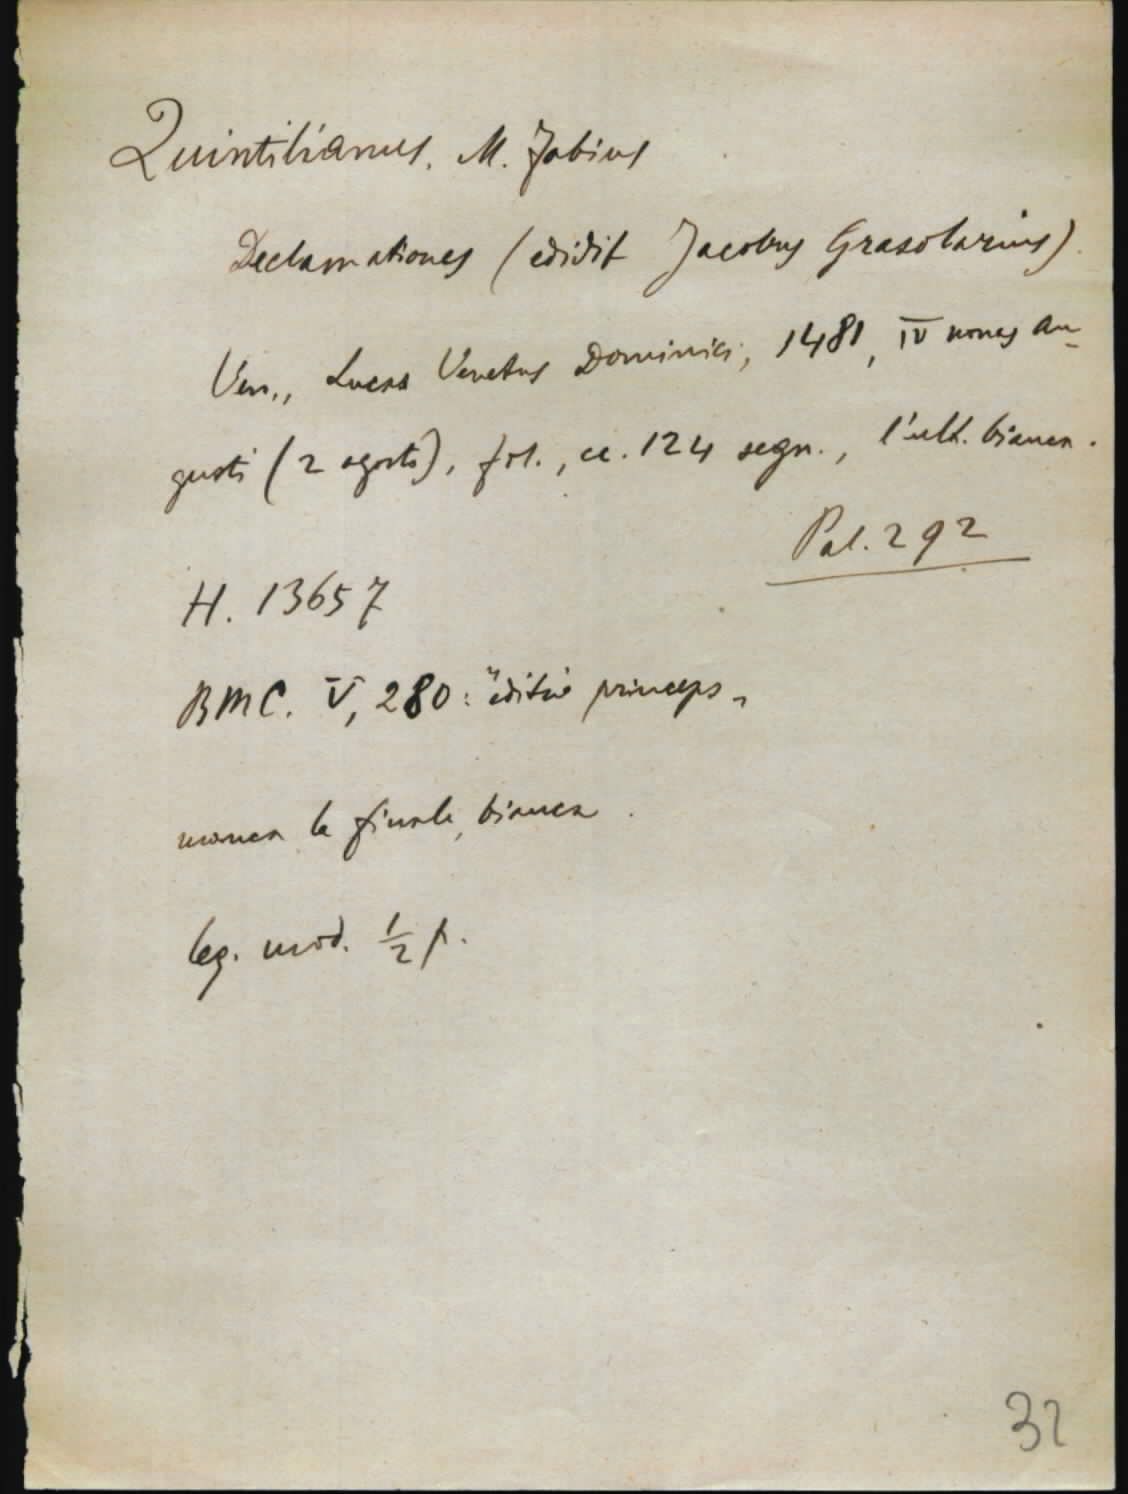 Quintilianus, M. Fabius
Declamationes (edidit Jacobus Grasolarius).
Ven., Lucas Venetus Dominici, 1481, IV nonas Au-
gusti (2 agosto), fol., cc. 124 segn., l'ult. bianca.
Pal. 292
H. 13657
BMC. V, 280: "editio princeps"
manca la finale, bianca.
leg. mod. 1/2 p.
32